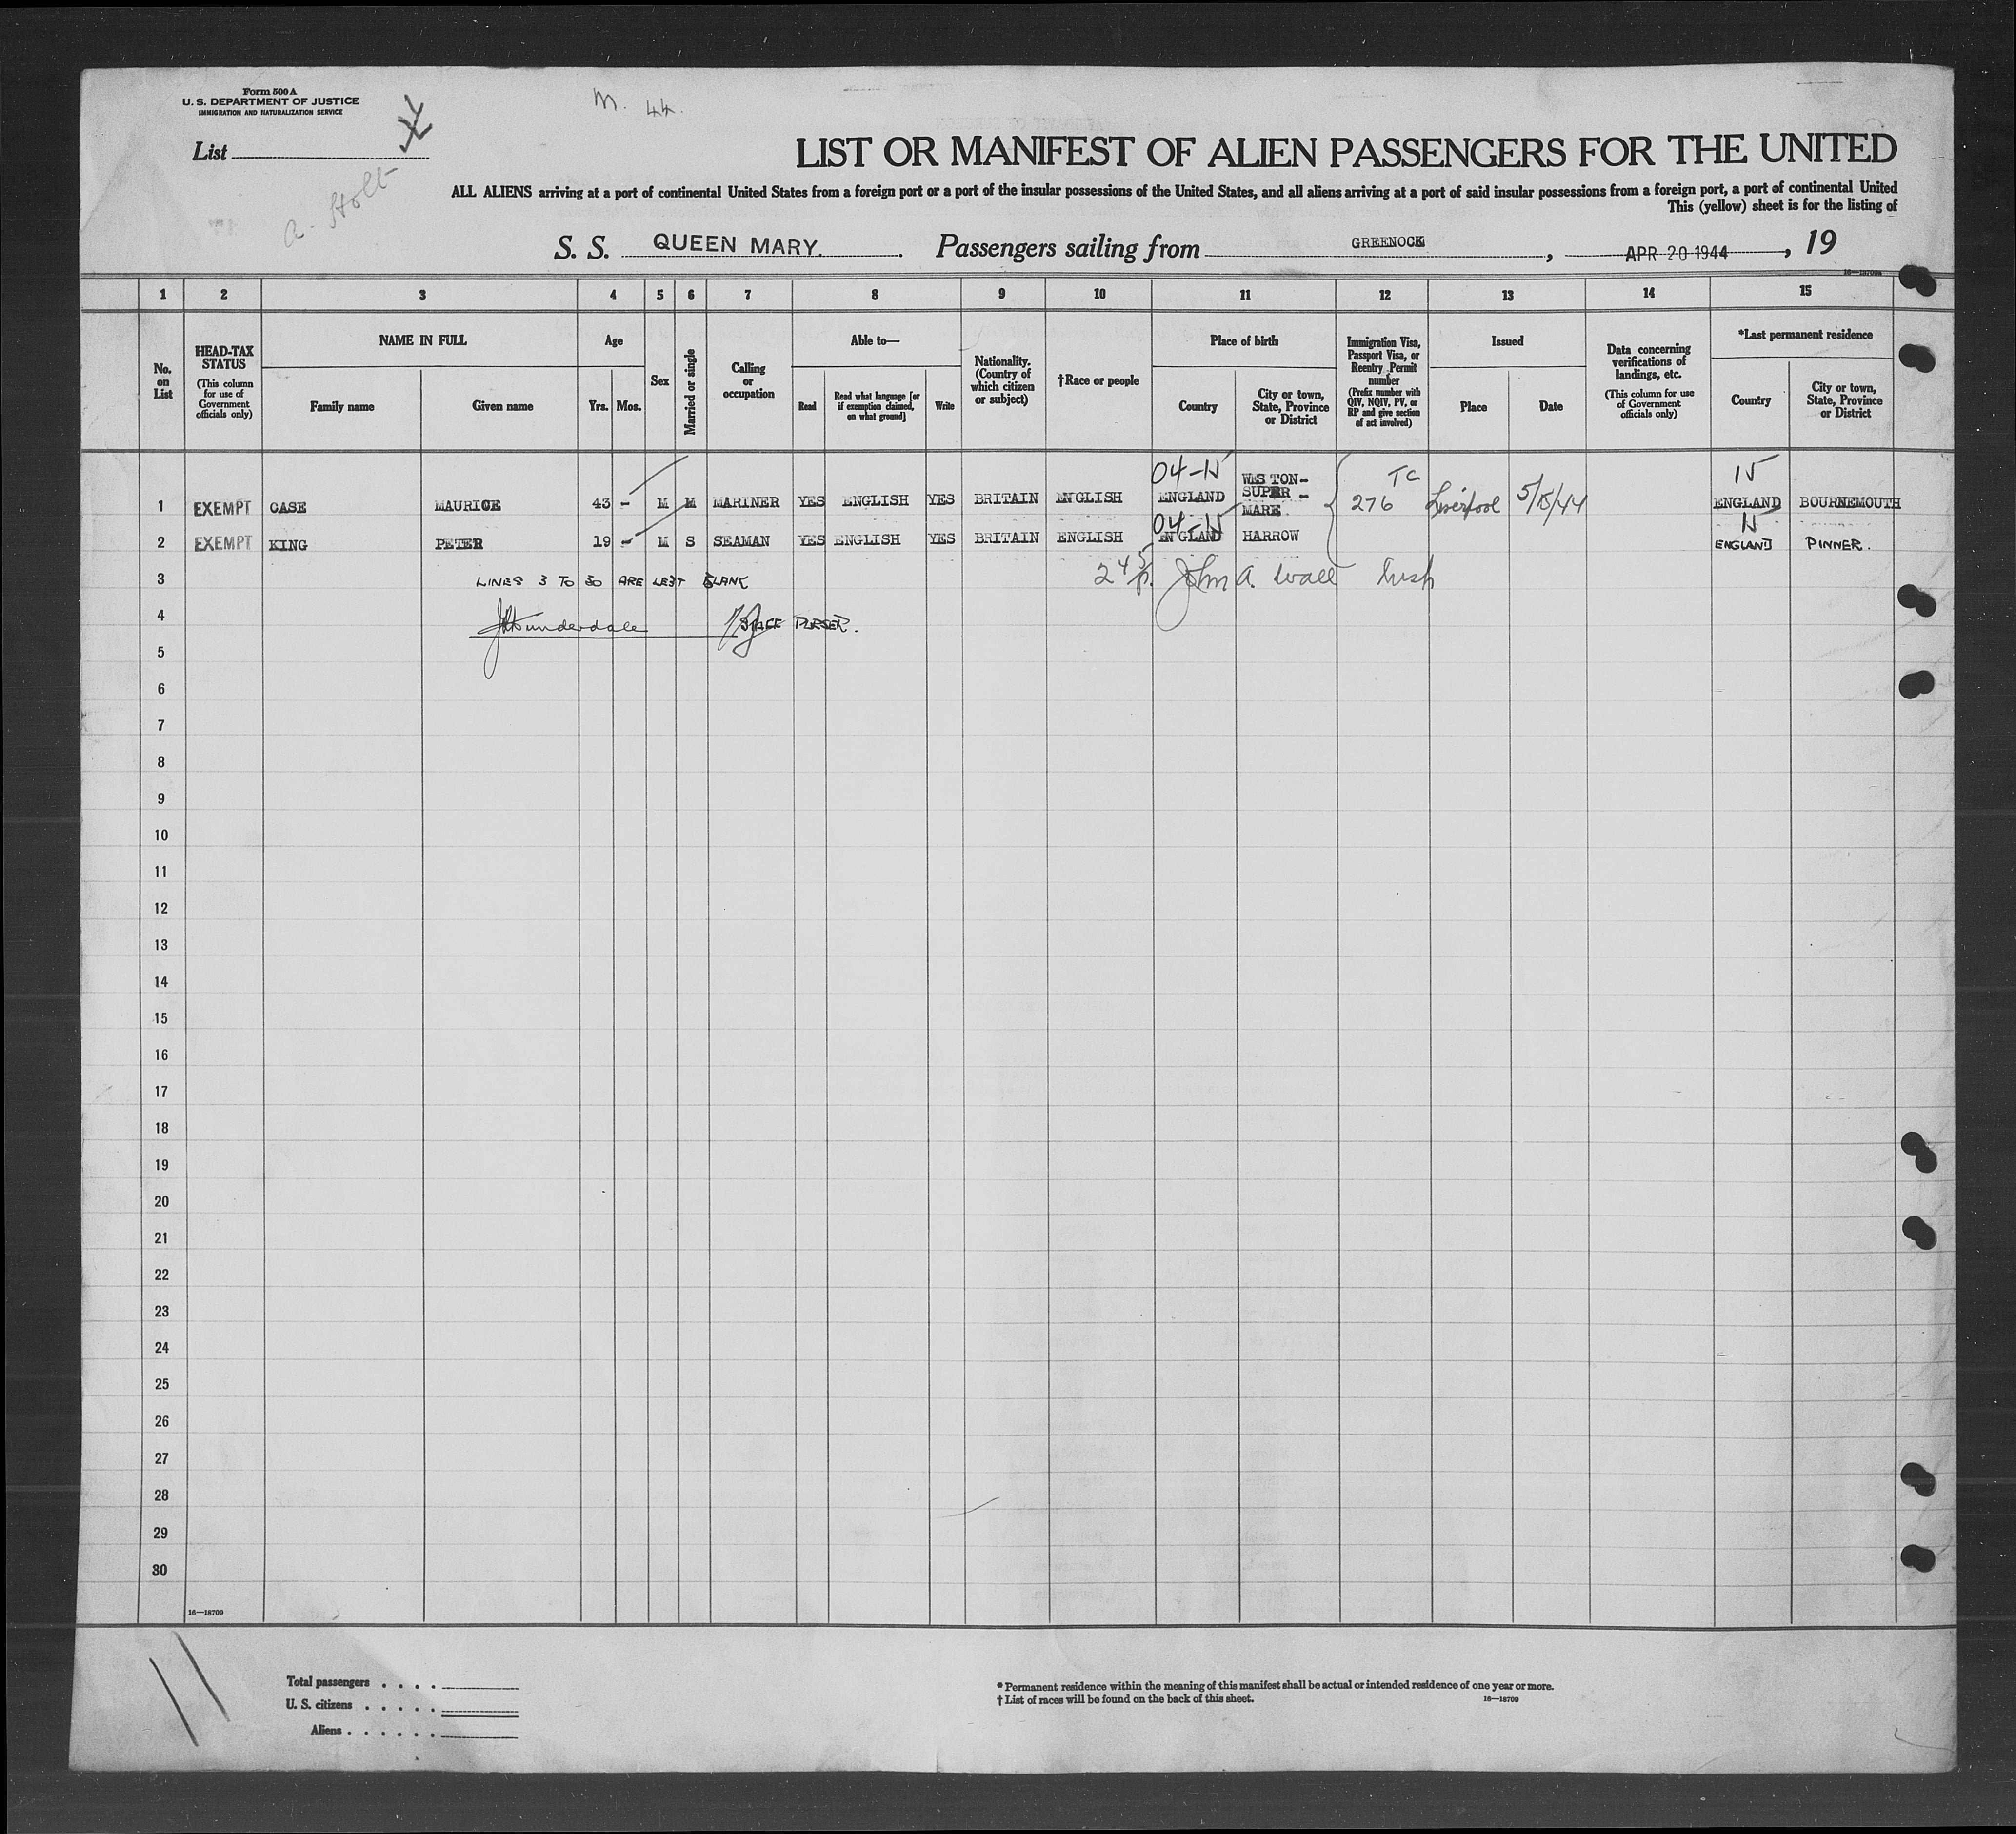 Form 500 A
U. S. DEPARTMENT OF JUSTICE
IMMIGRATION AND NATURALIZATION SERVICE
M. 44.
List
A. Stolt
LIST OR MANIFEST OF ALIEN PASSENGERS FOR THE UNITED
ALL ALIENS arriving at a port of continental United States from a foreign port or a port of the insular possessions of the United States, and all aliens arriving at a port of said insular possessions from a foreign port, a port of continental United
This (yellow) sheet is for the listing of
S. S. QUEEN MARY. Passengers sailing from GREENOCK, APR 20 1944, 19
16—18709
1 2 3 4 5 6 7 8 9 10 11 12 13 14 15
No. on List
HEAD-TAX STATUS
(This column for use of Government officials only)
NAME IN FULL
Family name
Given name
Age
Yrs.
Mos.
Sex
Married or single
Calling or occupation
Able to—
Read
Read what language [or if exemption claimed, on what ground]
Write
Nationality. (Country of which citizen or subject)
†Race or people
Place of birth
Country
City or town, State, Province or District
Immigration Visa, Passport Visa, or Reentry Permit number
(Prefix number with QIV, NQIV, PV, or RP and give section of act involved)
Issued
Place
Date
Data concerning verifications of landings, etc.
(This column for use of Government officials only)
*Last permanent residence
Country
City or town, State, Province or District
1 EXEMPT CASE MAURICE 43 – M M MARINER YES ENGLISH YES BRITAIN ENGLISH 04-N ENGLAND WESTON-SUPER-MARE TC 276 Liverpool 5/15/44 ENGLAND BOURNEMOUTH
2 EXEMPT KING PETER 19 – M S SEAMAN YES ENGLISH YES BRITAIN ENGLISH 04-N ENGLAND HARROW ENGLAND PINNER.
3 LINES 3 TO 30 ARE LEFT BLANK John A. Wall Insp
4 STAFF PURSER.
5
6
7
8
9
10
11
12
13
14
15
16
17
18
19
20
21
22
23
24
25
26
27
28
29
30
16—18709
11
Total passengers . . . .
U. S. citizens . . . . .
Aliens . . . . . .
* Permanent residence within the meaning of this manifest shall be actual or intended residence of one year or more.
† List of races will be found on the back of this sheet.
16—18709